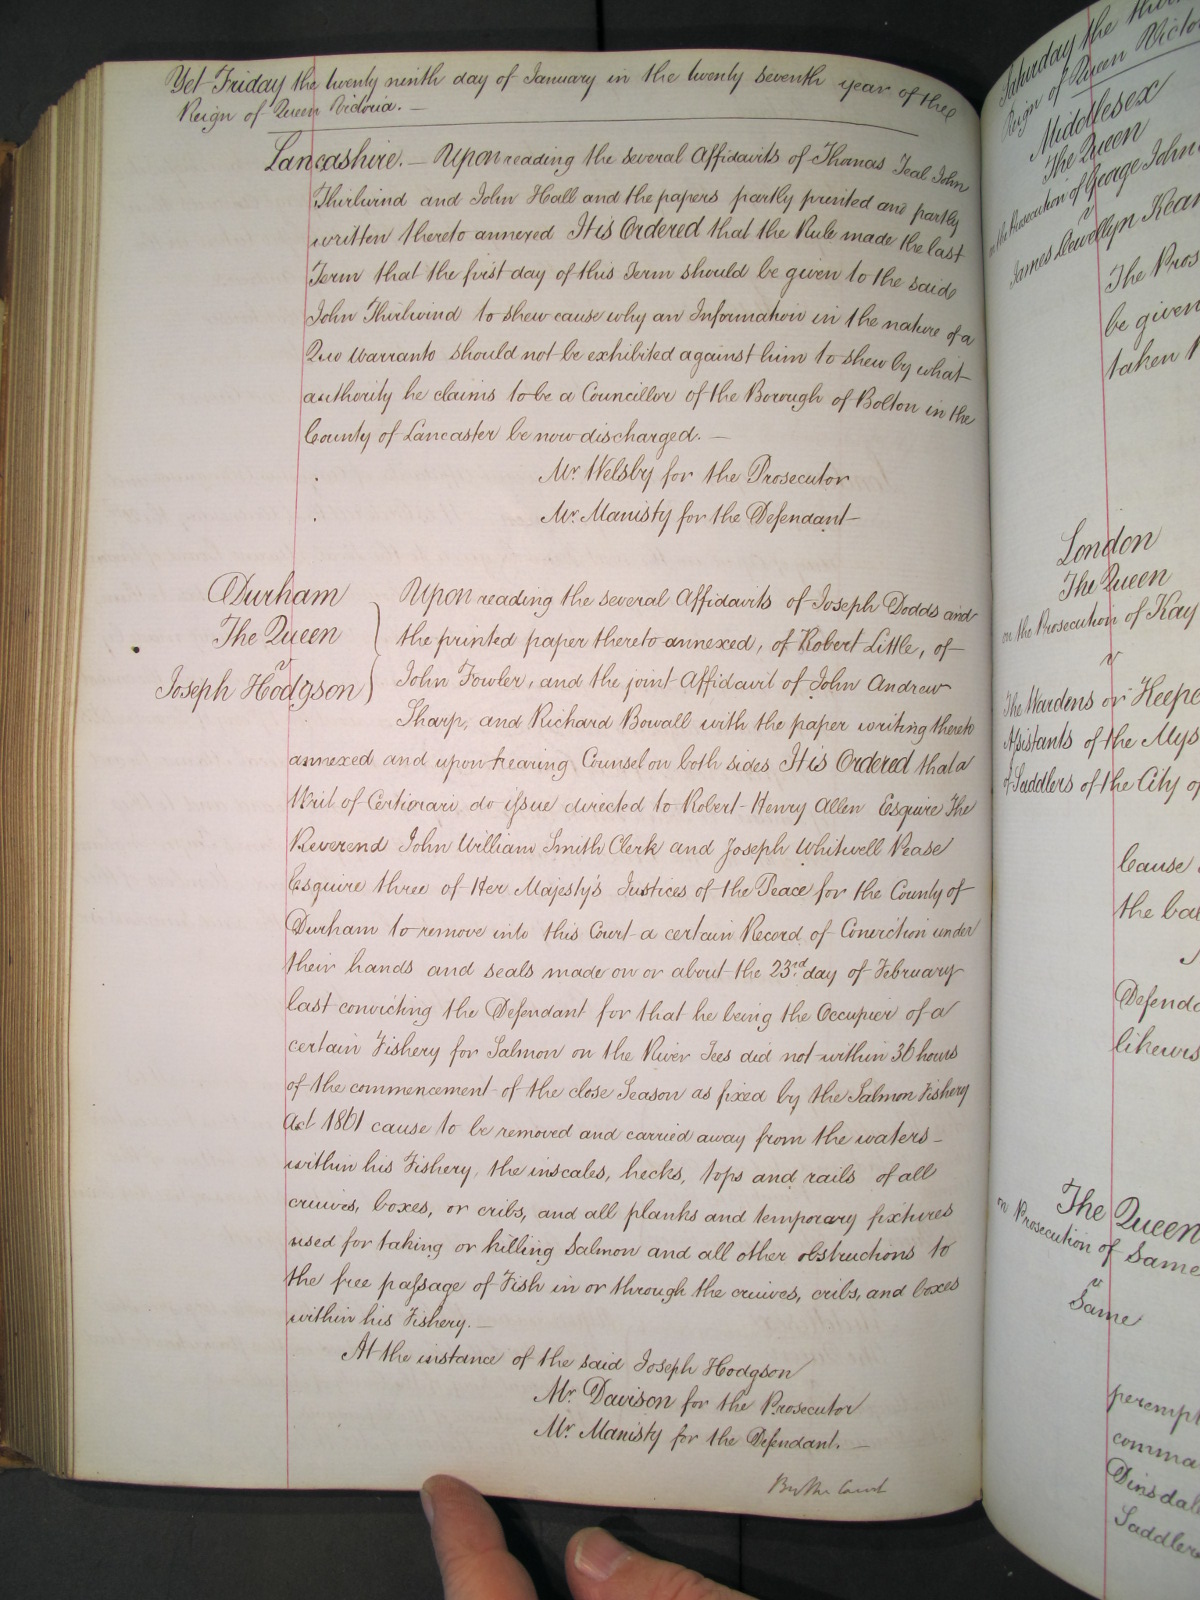 Yet Friday the twenty ninth day of January in the twenty seventh year of the
Reign of Queen Victoria. —
Lancashire. — Upon reading the several Affidavits of Thomas Teal John
Thirlwind and John Hall and the papers partly printed and partly
written thereto annexed It is Ordered that the Rule made the last
Term that the first day of this Term should be given to the said
John Thirlwind to shew cause why an Information in the nature of a
Quo Warranto should not be exhibited against him to shew by what
authority he claims to be a Councillor of the Borough of Bolton in the
County of Lancaster be now discharged. —
Mr. Welsby for the Prosecutor
Mr. Manisty for the Defendant
Durham
The Queen
v
Joseph Hodgson
Upon reading the several Affidavits of Joseph Dodds and
the printed paper thereto annexed, of Robert Little, of
John Fowler, and the joint Affidavit of John Andrew
Sharp, and Richard Bowall with the paper writing thereto
annexed and upon hearing Counsel on both sides It is Ordered that a
Writ of Certiorari do issue directed to Robert Henry Allen Esquire The
Reverend John William Smith Clerk and Joseph Whitwell Pease
Esquire three of Her Majesty's Justices of the Peace for the County of
Durham to remove into this Court a certain Record of Conviction under
their hands and seals made on or about the 23rd day of February
last convicting the Defendant for that he being the Occupier of a
certain Fishery for Salmon on the River Tees did not within 36 hours
of the commencement of the close Season as fixed by the Salmon Fishery
Act 1861 cause to be removed and carried away from the waters
within his Fishery the inscales, hecks, tops and rails of all
cruives, boxes, or cribs, and all planks and temporary fixtures
used for taking or killing Salmon and all other obstructions to
the free passage of Fish in or through the cruives, cribs, and boxes
within his Fishery. —
At the instance of the said Joseph Hodgson
Mr. Davison for the Prosecutor
Mr. Manisty for the Defendant. —
By the Court
Saturday the
Reign of Queen Victo
Middlesex
The Queen
on the Prosecution of George John
v
James Llewellyn Kear
The Pros
be given
taken
London
The Queen
on the Prosecution of Kay
v
The Wardens or Keepe
Assistants of the Mys
of Saddlers of the City of
Cause
the ba
Defenda
likewis
The Queen
on Prosecution of Same
v
Same
perempt
comma
Dinsdal
Saddler